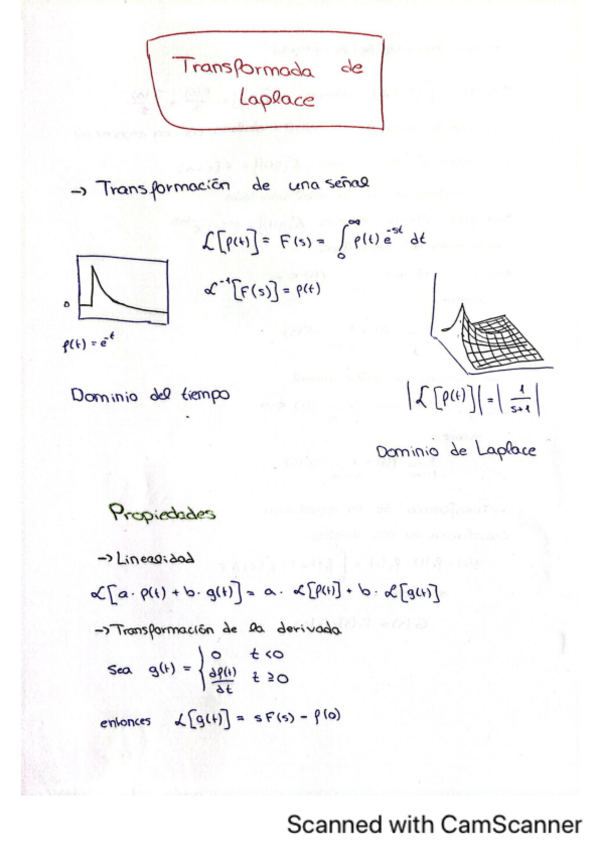 Transformada de
Laplace
→ Transformación de una señal
ℒ[f(t)] = F(s) = ∫₀^∞ f(t) e^-st dt
ℒ⁻¹[F(s)] = f(t)
0
f(t) = e^-t
Dominio del tiempo
|ℒ[f(t)]| = |1/(s+1)|
Dominio de Laplace
Propiedades
→ Linealidad
ℒ[a · f(t) + b · g(t)] = a · ℒ[f(t)] + b · ℒ[g(t)]
→ Transformación de la derivada
Sea g(t) = { 0 t < 0
df(t)/dt t ≥ 0
entonces ℒ[g(t)] = sF(s) - f(0)
Scanned with CamScanner